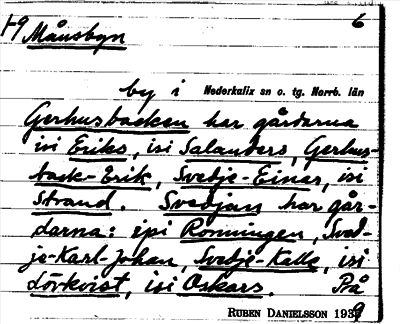 1-9 Månsbyn 6
by i Nederkalix sn o. tg. Norrb. län
Gerhusbacken har gårdarna
isi Eriks, isi Salanders, Gerhus-
back-Erik, Svedje-Einar, isi
Strand. Svedjan har går-
darna: ipi Rönningen, Sved-
je-Karl-Johan, Svedje-Kalle, isi
Lövkvist, isi Oskars. På
RUBEN DANIELSSON 1939